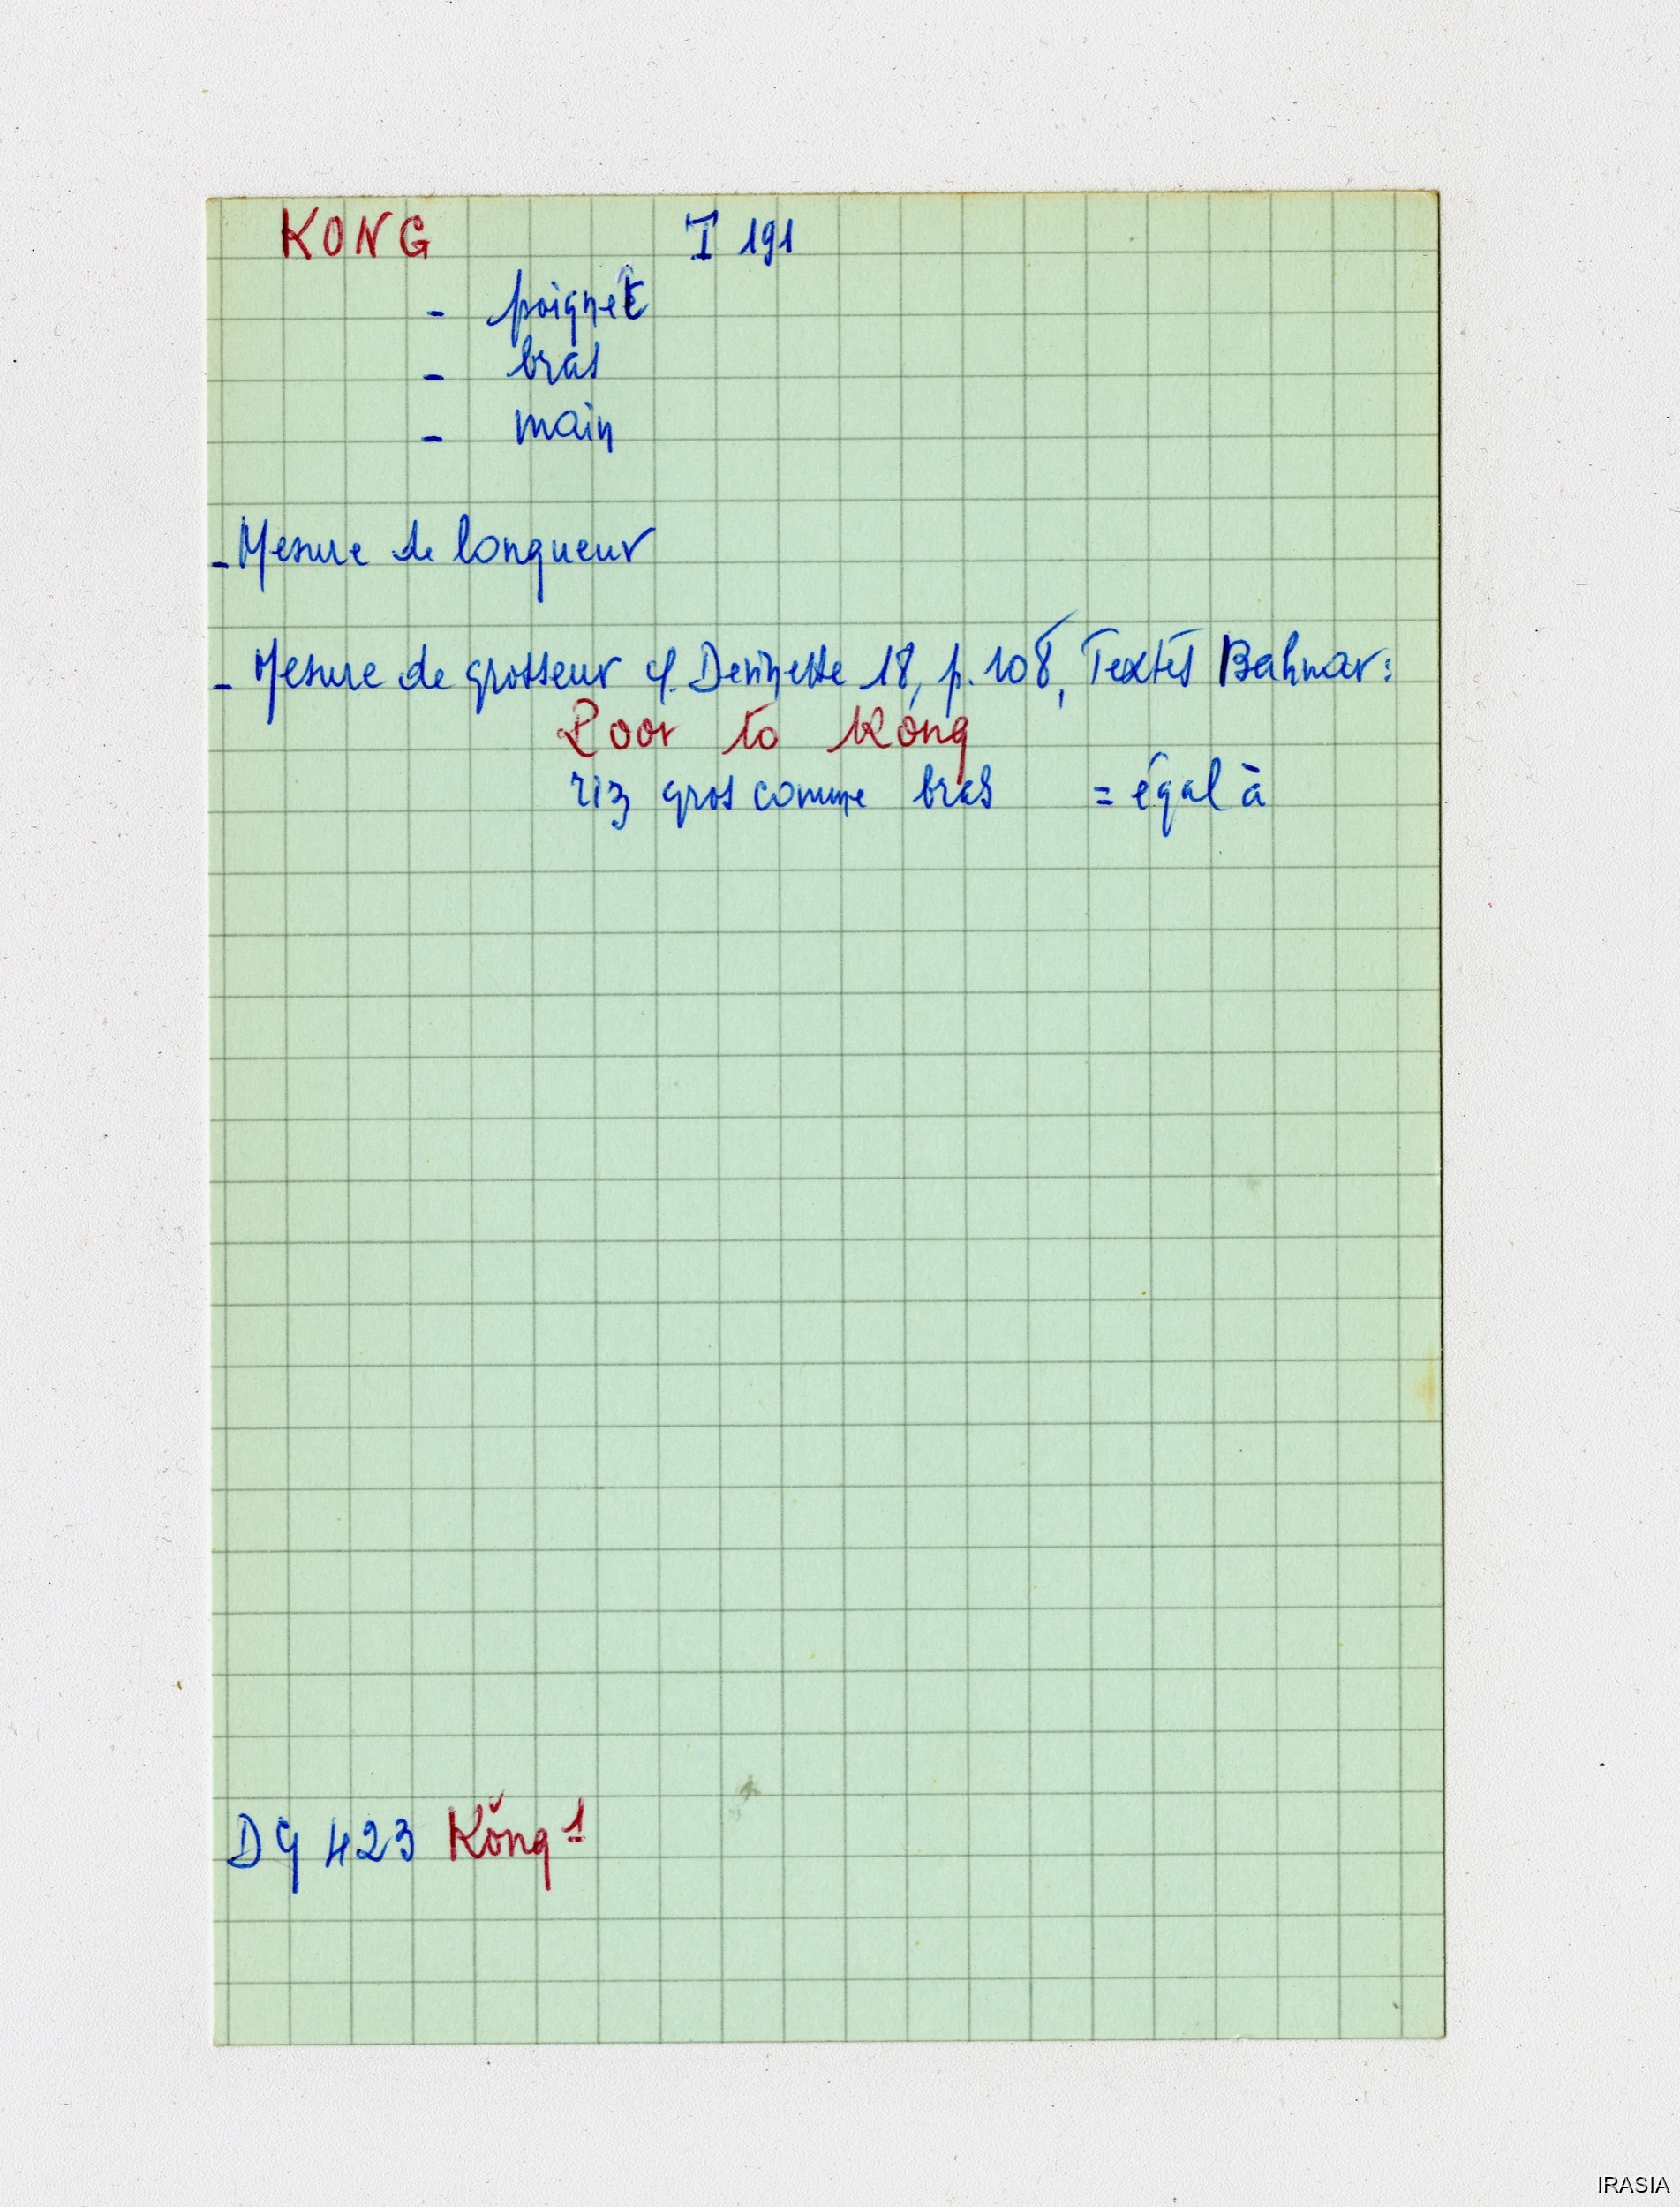 KONG I 191
- poignet
- bras
- main
- Mesure de longueur
- Mesure de grosseur cf. Devinette 18, p. 108, Textes Bahnar :
Poor to Kong
riz gros comme bras = égal à
DG 423 Kŏng 1
IRASIA